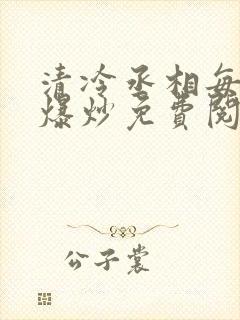 清冷丞相每
爆炒免费阅
公子裳